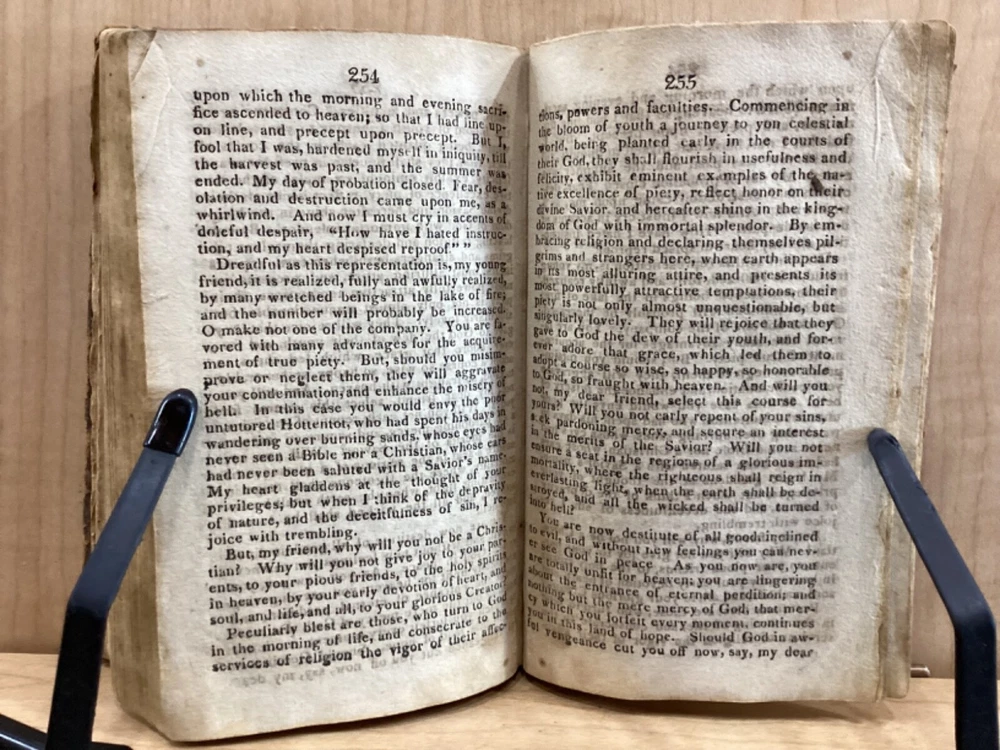 254
upon which the morning and evening sacri-
fice ascended to heaven; so that I had line up-
on line, and precept upon precept. But I,
fool that I was, hardened myself in iniquity, till
the harvest was past, and the summer was
ended. My day of probation closed. Fear, des-
olation and destruction came upon me, as a
whirlwind. And now I must cry in accents of
doleful despair, “How have I hated instruc-
tion, and my heart despised reproof.” ”
Dreadful as this representation is, my young
friend, it is realized, fully and awfully realized,
by many wretched beings in the lake of fire;
and the number will probably be increased.
O make not one of the company. You are fa-
vored with many advantages for the acquire-
ment of true piety. But, should you misim-
prove or neglect them, they will aggravate
your condemnation, and enhance the misery of
hell. In this case you would envy the poor
untutored Hottentot, who had spent his days in
wandering over burning sands, whose eyes had
never seen a Bible nor a Christian, whose ears
had never been saluted with a Savior's name.
My heart gladdens at the thought of your
privileges; but when I think of the depravity
of nature, and the deceitfulness of sin, I re-
joice with trembling.
But, my friend, why will you not be a Chris-
tian? Why will you not give joy to your par-
ents, to your pious friends, to the holy spirits
in heaven, by your early devotion of heart, and
soul, and life, and all, to your glorious Creator?
Peculiarly blest are those, who turn to God
in the morning of life, and consecrate to the
services of religion the vigor of their affec-
255
tions, powers and faculties. Commencing in
the bloom of youth a journey to yon celestial
world, being planted early in the courts of
their God, they shall flourish in usefulness and
felicity, exhibit eminent examples of the na-
tive excellence of piety, reflect honor on their
divine Savior and hereafter shine in the king-
dom of God with immortal splendor. By em-
bracing religion and declaring themselves pil-
grims and strangers here, when earth appears
in its most alluring attire, and presents its
most powerfully attractive temptations, their
piety is not only almost unquestionable, but
singularly lovely. They will rejoice that they
gave to God the dew of their youth, and for-
ever adore that grace, which led them to
adopt a course so wise, so happy, so honorable
to God, so fraught with heaven. And will you
not, my dear friend, select this course for
yours? Will you not early repent of your sins,
seek pardoning mercy, and secure an interest
in the merits of the Savior? Will you not
ensure a seat in the regions of a glorious im-
mortality, where the righteous shall reign in
everlasting light, when the earth shall be de-
stroyed, and all the wicked shall be turned
into hell?
You are now destitute of all good, inclined
to evil, and without new feelings you can nev-
er see God in peace. As you now are, you
are totally unfit for heaven; you are lingering
about the entrance of eternal perdition; and
nothing but the mere mercy of God, that mer-
cy which you forfeit every moment, continues
you in this land of hope. Should God in aw-
ful vengeance cut you off now, say, my dear